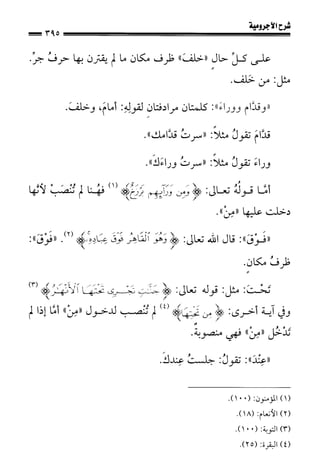 شرح الآجرومية
٣٩٥
على كـلِّ حالٍ «خلفَ» ظرف مكان ما لم يقترن بها حرفُ جرٍّ.
مثل: مِن خَلف.
«وقدَّام ووراءَ»: كلمتان مرادفتانِ لقولِهِ: أمامَ، وخلفَ.
قدَّامَ تقولُ مثلاً: «سرتُ قدَّامك».
وراءَ تقولُ مثلاً: «سرتُ وراءَكَ».
أمَّـا قـولُهُ تعـالى: ﴿ وَمِن وَرَآئِهِم بَرْزَخٌ ﴾ (١) فهُـنا لم تُنْصَبْ لأنَّها
دخلت عليها «مِنْ».
«فَـوْقَ»: قال الله تعالى: ﴿ وَهُوَ ٱلْقَاهِرُ فَوْقَ عِبَادِهِۦ ﴾ (٢). «فَوْقَ»:
ظرفُ مكانٍ.
تَحْـتَ: مثل: قوله تعالى: ﴿ جَنَّٰتٍ تَجْـرِى تَحْتَهَـا ٱلْأَنْهَٰرُ ﴾ (٣)
وفي آيـة أخـرى: ﴿ مِن تَحْتِهَا ﴾ (٤) لم تُنْصـب لدخـول «مِنْ» أمَّا إذا لم
تَدْخُل «مِنْ» فهي منصوبةٌ.
«عِنْدَ»: تقولُ: جلستُ عِندكَ.
(١) المؤمنون: (١٠٠).
(٢) الأنعام: (١٨).
(٣) التوبة: (١٠٠).
(٤) البقرة: (٢٥).